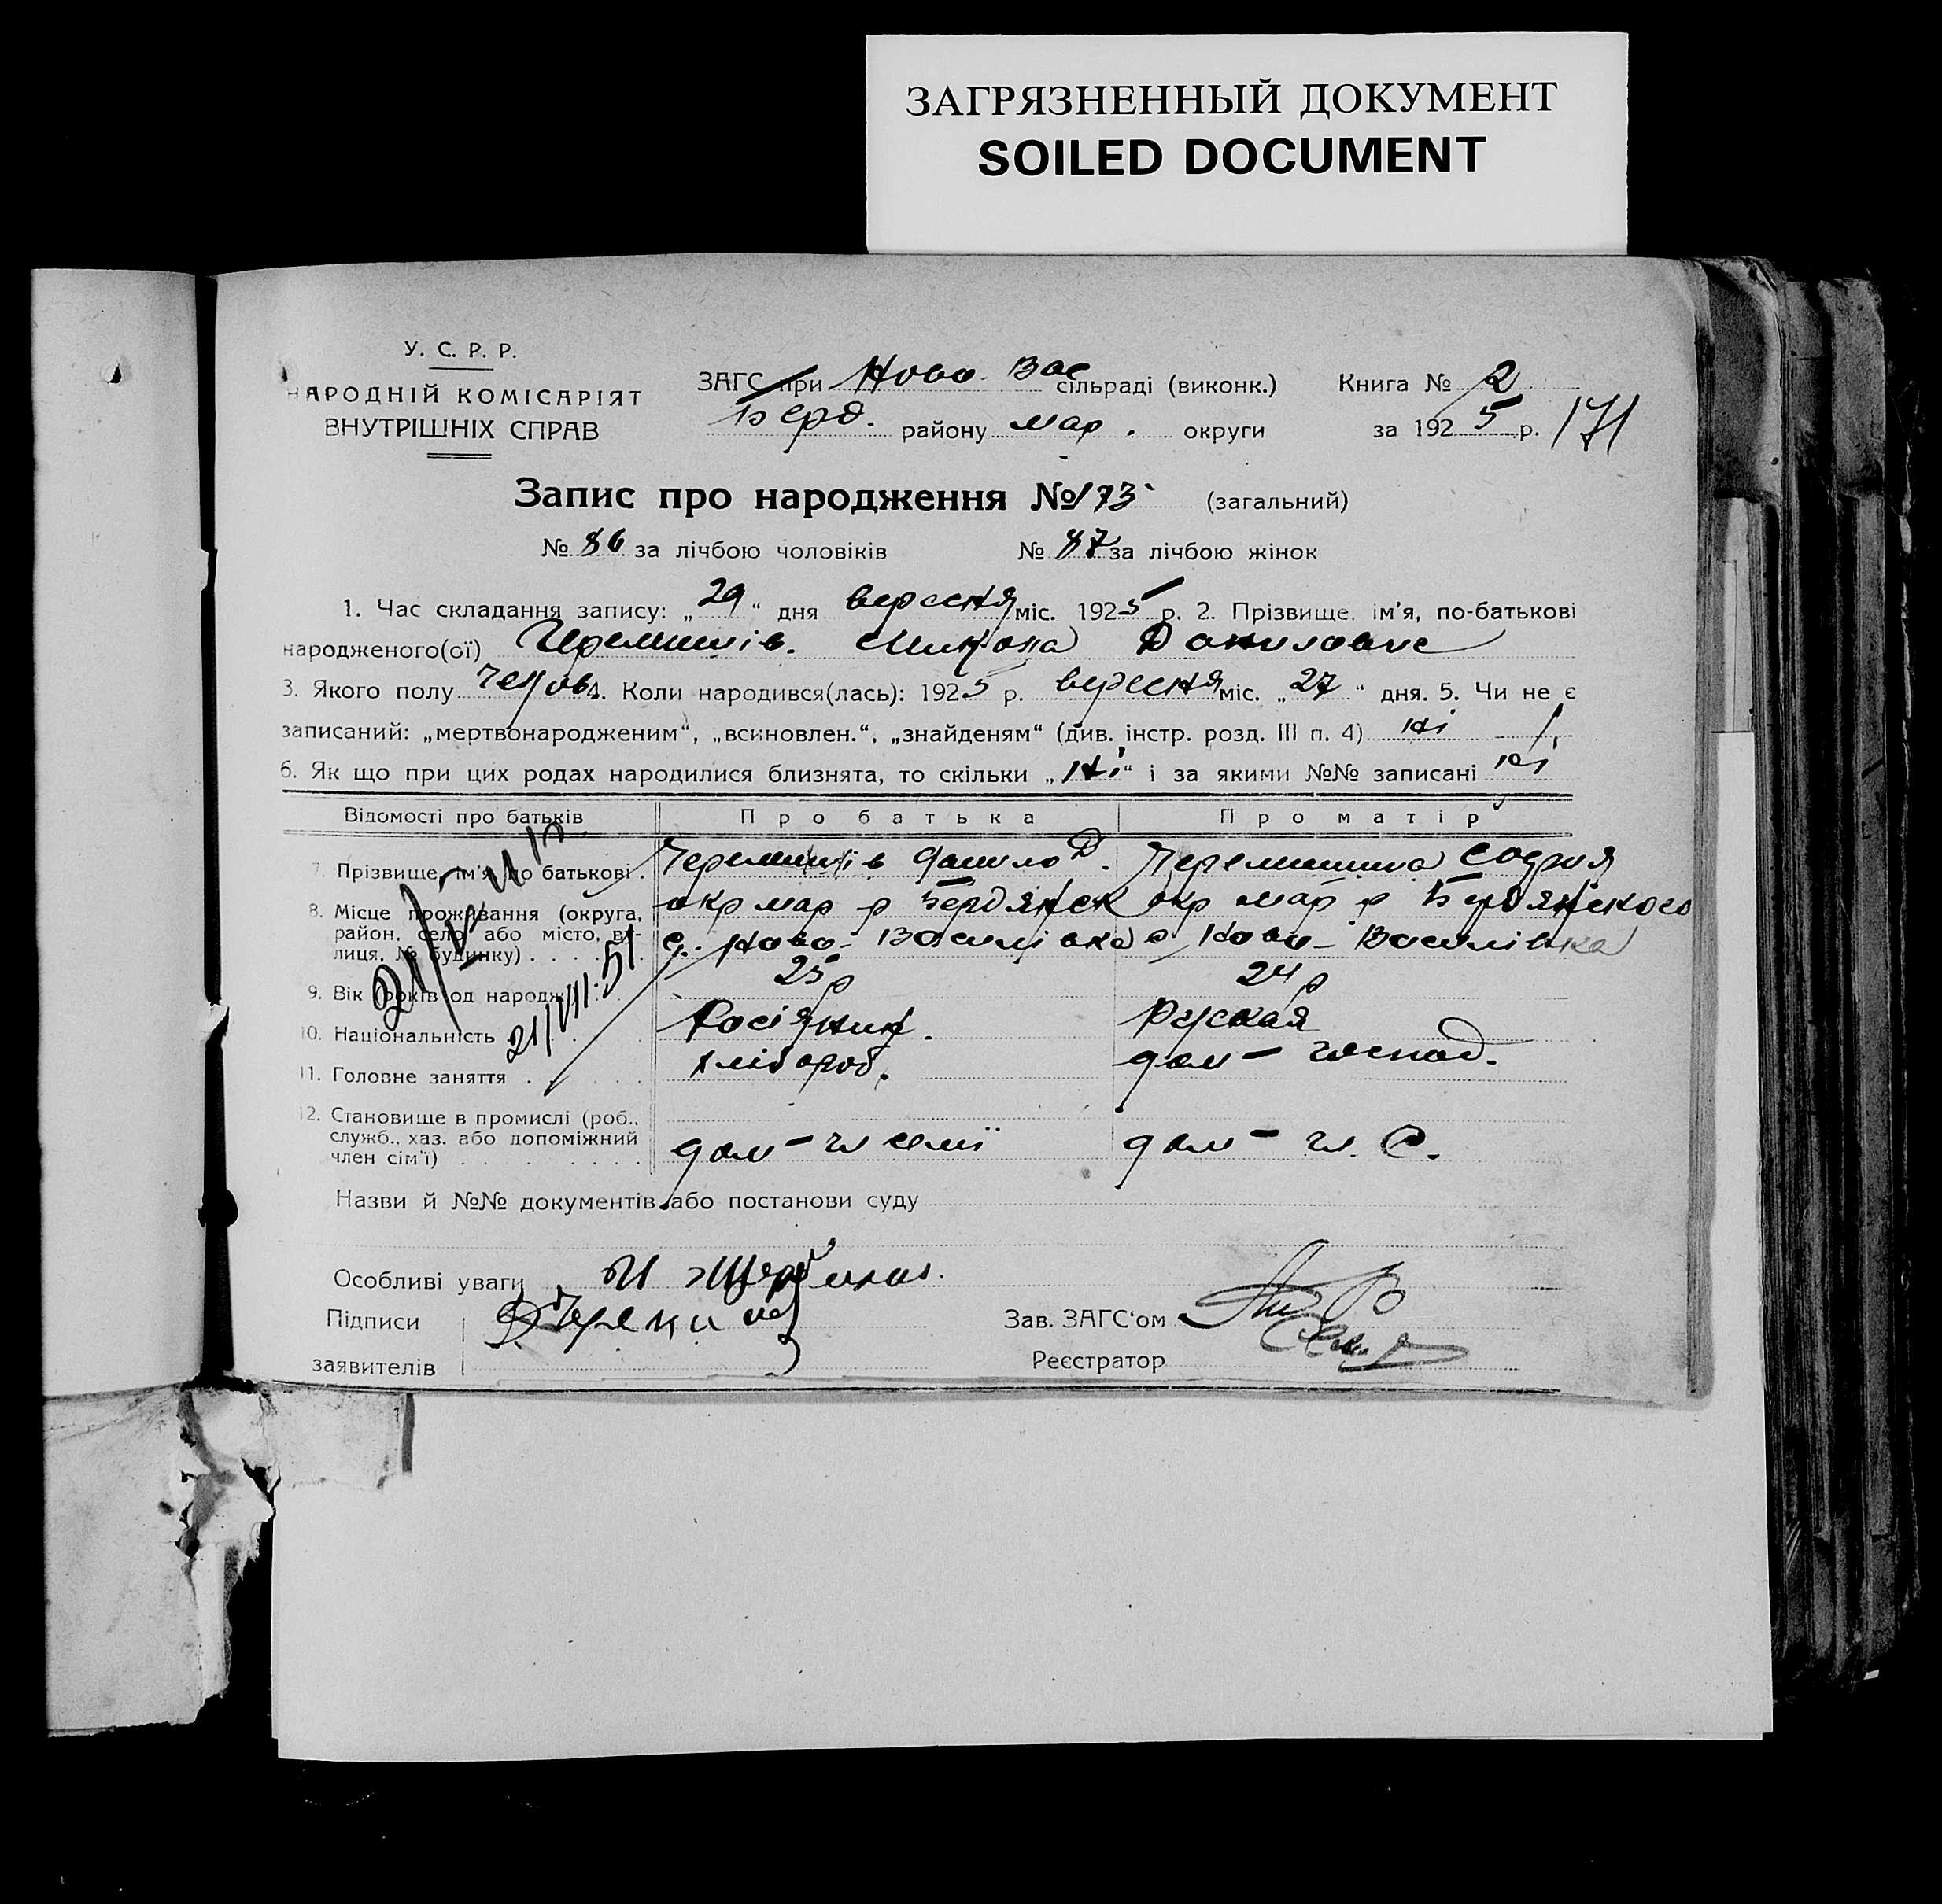 ЗАГРЯЗНЕННЫЙ ДОКУМЕНТ
SOILED DOCUMENT
У. С. Р. Р.
НАРОДНІЙ КОМІСАРІЯТ
ВНУТРІШНІХ СПРАВ
ЗАГС при Ново Вас сільраді (виконк.)
Берд. району мар. округи
Книга № 2
за 1925 р. 171
Запис про народження № 173 (загальний)
№ 86 за лічбою чоловіків № 87 за лічбою жінок
1. Час складання запису: „29“ дня вересня міс. 1925 р. 2. Прізвище, ім'я, по-батькові
народженого(ої) Микола Данилович
3. Якого полу 4. Коли народився(лась): 1925 р. вересня міс. „27“ дня. 5. Чи не є
записаний: „мертвонародженим“, „всиновлен.“, „знайденям“ (див. інстр. розд. III п. 4) ні
6. Як що при цих родах народилися близнята, то скільки „ні“ і за якими №№ записані ні
Відомості про батьків Про батька Про матір
7. Прізвище, ім'я, по батькові . Данило Д. София
8. Місце проживання (округа, район, село або місто, вулиця, № будинку) . . . . окр мар р Бердянск окр мар р Бердянского
с. Ново-Василівка с Ново-Василівка
9. Вік (років од народж. 25 р 24 р
10. Національність Росіянин. Руская
11. Головне заняття . хлібороб. дом-господ.
21/VIII-51
12. Становище в промислі (роб., служб., хаз. або допоміжний член сім'ї) . . . дом-гл семї дом-гл. С.
Назви й №№ документів або постанови суду
Особливі уваги
Підписи
заявителів
Зав. ЗАГС'ом
Реєстратор